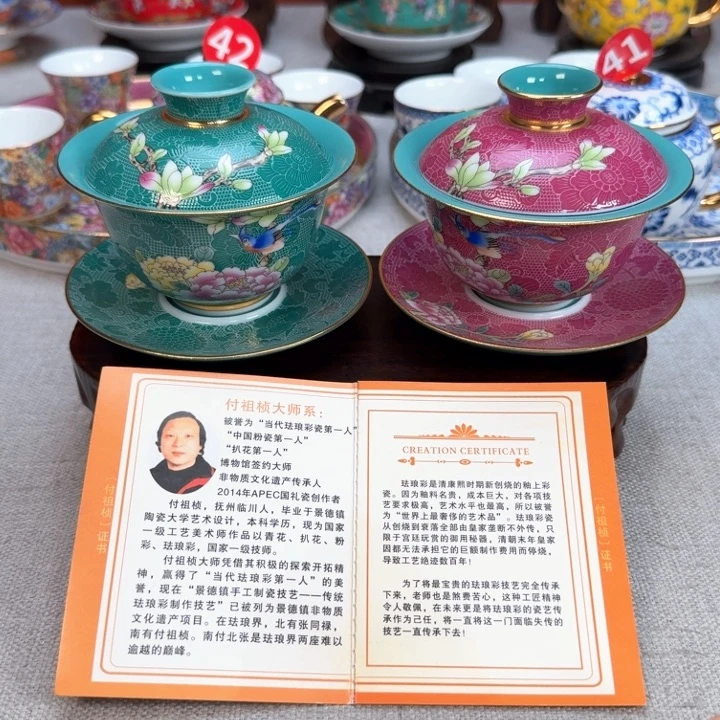 42
41
付祖桢大师系：
被誉为“当代珐琅彩瓷第一人”
“中国粉瓷第一人”
“扒花第一人”
博物馆签约大师
非物质文化遗产传承人
2014年APEC国礼瓷创作者
付祖桢，抚州临川人，毕业于景德镇
陶瓷大学艺术设计，本科学历，现为国家
一级工艺美术师作品以青花、扒花、粉
彩、珐琅彩，国家一级技师。
付祖桢大师凭借其积极的探索开拓精
神，赢得了“当代珐琅彩第一人”的美
誉，现在“景德镇手工制瓷技艺——传统
珐琅彩制作技艺”已被列为景德镇非物质
文化遗产项目。在珐琅界，北有张同禄，
南有付祖桢。南付北张是珐琅界两座难以
逾越的巅峰。
【付祖桢】证书
CREATION CERTIFICATE
珐琅彩是清康熙时期新创烧的釉上彩
瓷。因为釉料名贵，成本巨大，对各项技
艺要求极高，艺术水平也最高，所以被誉
为“世界上最奢侈的艺术品”。珐琅彩瓷
从创烧到衰落全部由皇家垄断不外传，只
限于宫廷玩赏的御用秘器，清朝末年皇家
因都无法承担它的巨额制作费用而停烧，
导致工艺绝迹数百年！
为了将最宝贵的珐琅彩技艺完全传承
下来，老师也是煞费苦心，这种工匠精神
令人敬佩，在未来更是将珐琅彩的瓷艺传
承作为己任，将一直将这一门面临失传的
技艺一直传承下去！
【付祖桢】证书